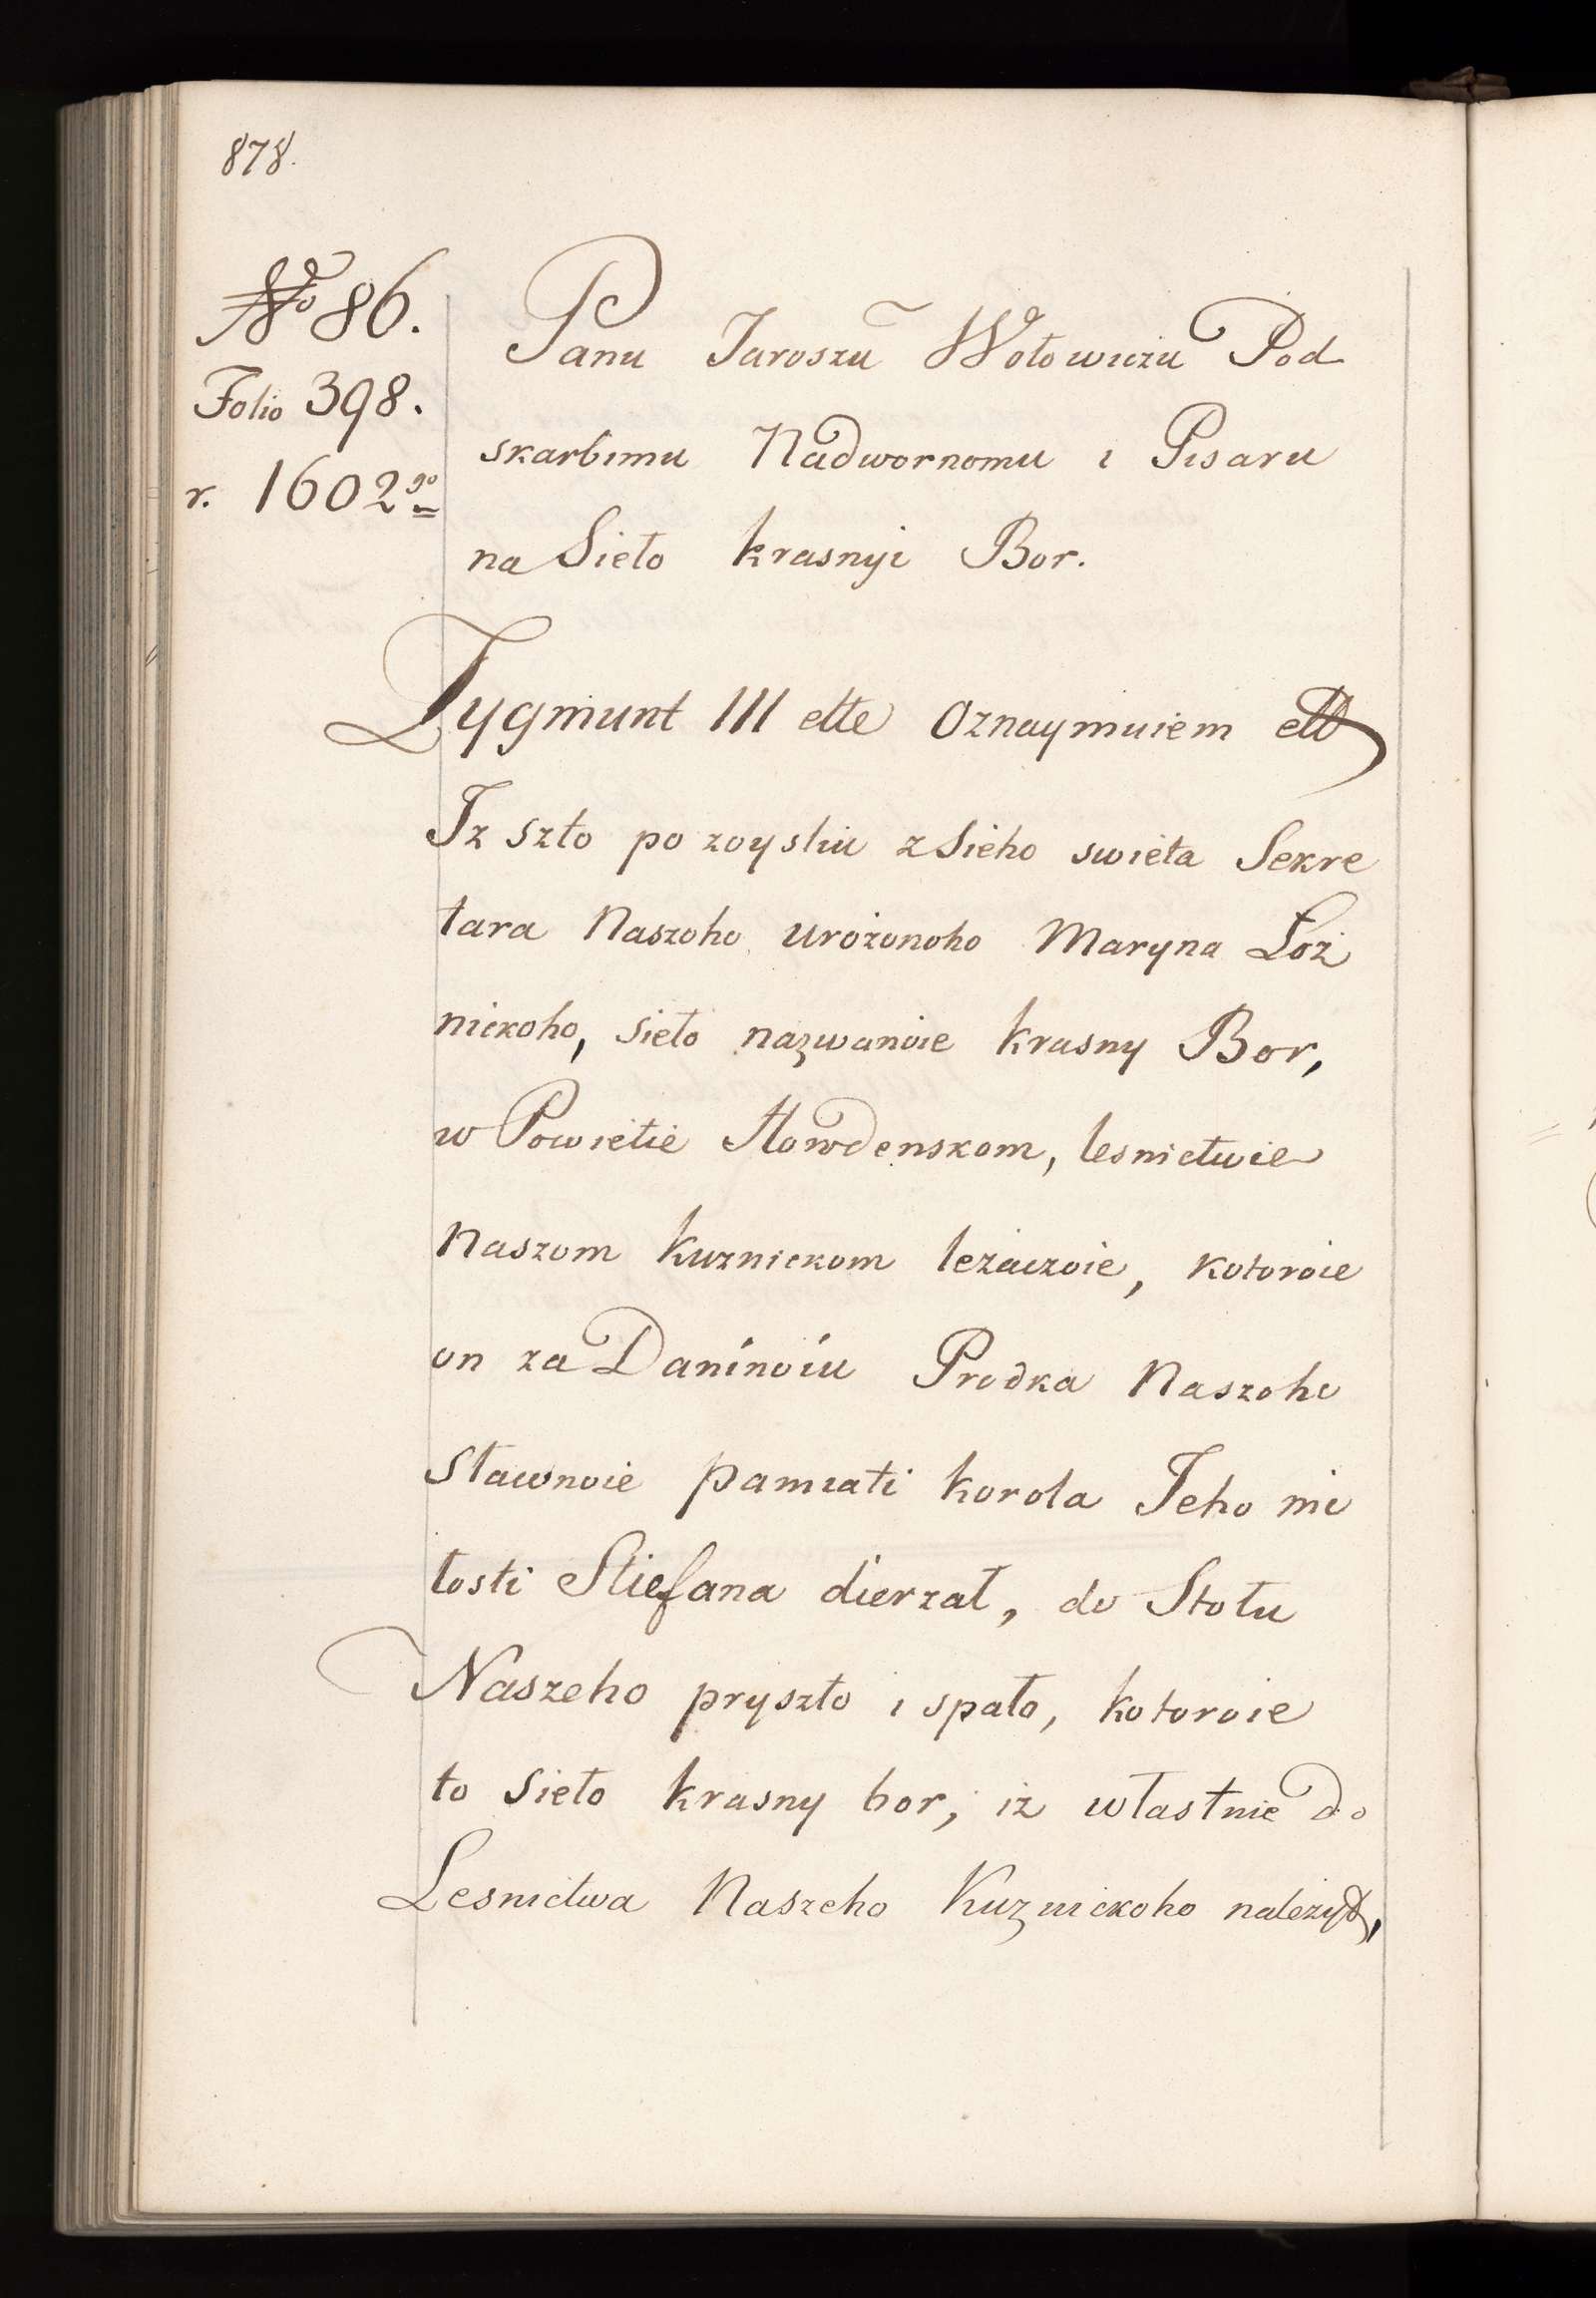 878.
No 86.
Folio 398.
r. 1602go
Panu Jaroszu Wołowiczu Pod
skarbimu Nadwornomu i Pisaru
na Sieło krasnyi Bor.
Zygmunt III ette Oznaymuiem ett
Iz szto po zoysliu z Sieho swieta Sekre
tara Naszoho urożonoho Maryna Łoz
nickoho, sieło nazwanoie krasny Bor,
w Powietie Howdenskom, lesnictwie
Naszom kuznickom leżaczoie, kotoroie
on za Daninoiu Prodka Naszoho
Sławnoie pamiati korola Jeho mi
łosti Stiefana dierzał, do Stołu
Naszeho pryszło i spało, kotoroie
to Sieło krasny bor, iż własłnie do
Lesnictwa Naszeho Kuznickoho należyt,